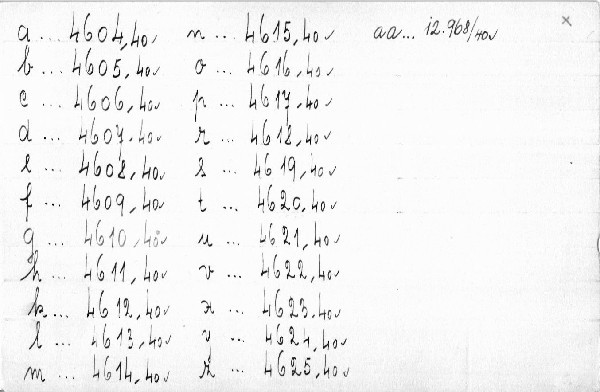 a ... 4604,40
b ... 4605,40
c ... 4606,40
d ... 4607,40
e ... 4608,40
f ... 4609,40
g ... 4610,40
h ... 4611,40
k ... 4612,40
l ... 4613,40
m ... 4614,40
n ... 4615,40
o ... 4616,40
p ... 4617,40
r ... 4618,40
s ... 4619,40
t ... 4620,40
u ... 4621,40
v ... 4622,40
x ... 4623,40
y ... 4624,40
z ... 4625,40
aa... 12.968/40
x